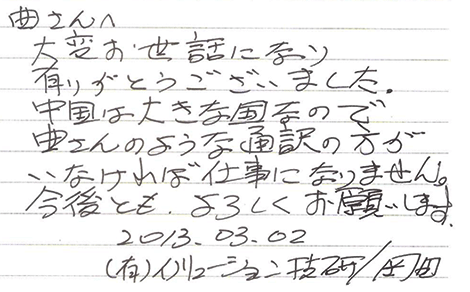 曲さんへ
大変お世話になり
有りがとうございました.
中国は大きな国なので
曲さんのような通訳の方が
いなければ仕事になりません。
今後とも、よろしくお願いします.
2013.03.02
(有)イリュージョン技研/岡田